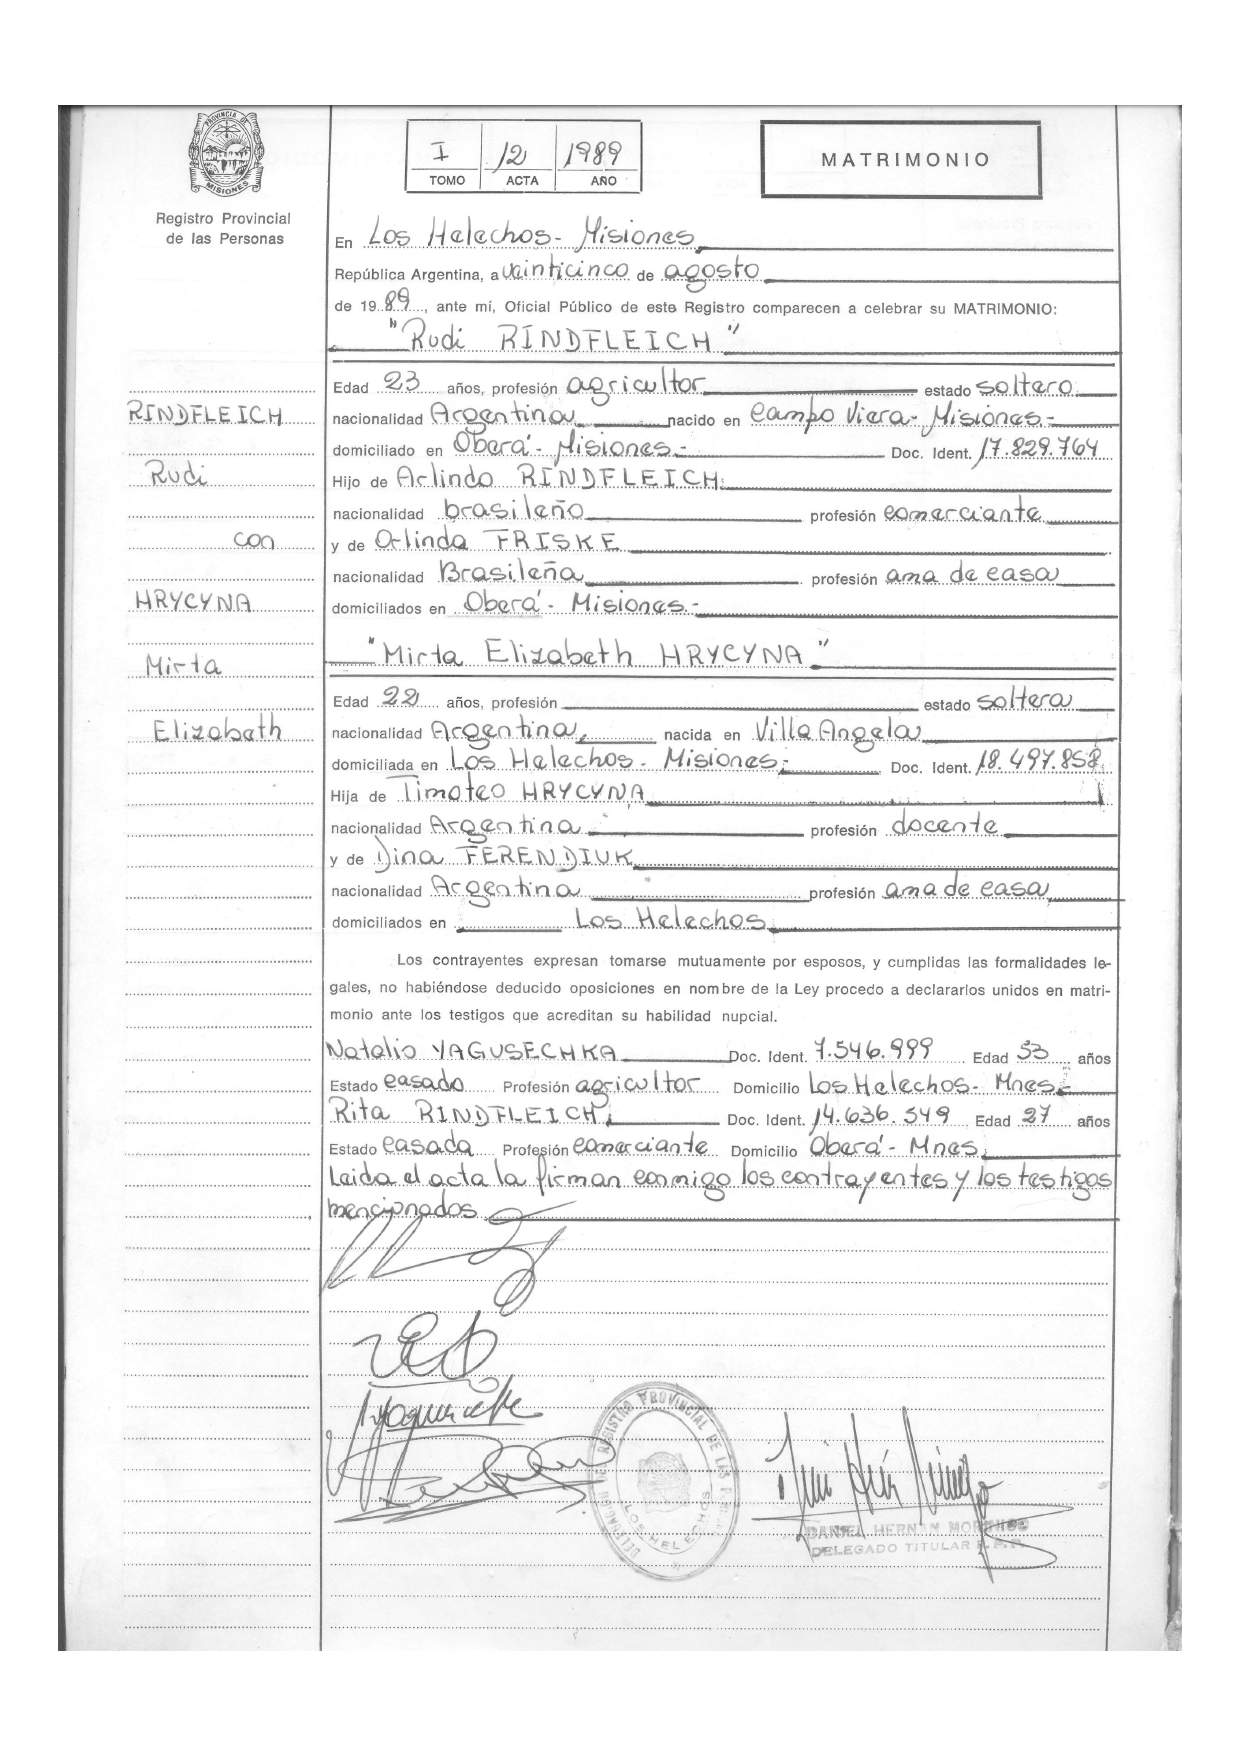 PROVINCIA DE
MISIONES
Registro Provincial
de las Personas
I 12 1989
TOMO ACTA AÑO
MATRIMONIO
En Los Helechos - Misiones
República Argentina, a veinticinco de agosto
de 1989, ante mí, Oficial Público de este Registro comparecen a celebrar su MATRIMONIO:
"Rudi RINDFLEICH"
Edad 23 años, profesión agricultor estado soltero
nacionalidad Argentina nacido en Campo Viera - Misiones -
domiciliado en Oberá - Misiones - Doc. Ident. 17.829.764
Hijo de Arlindo RINDFLEICH
nacionalidad brasileño profesión comerciante
y de Orlinda FRISKE
nacionalidad Brasileña profesión ama de casa
domiciliados en Oberá - Misiones -
"Mirta Elizabeth HRYCYNA"
Edad 22 años, profesión estado soltera
nacionalidad Argentina, nacida en Villa Angela
domiciliada en Los Helechos - Misiones, Doc. Ident. 18.497.858
Hija de Timoteo HRYCYNA
nacionalidad Argentina profesión docente
y de Dina FERENDIUK
nacionalidad Argentina profesión ama de casa
domiciliados en Los Helechos
Los contrayentes expresan tomarse mutuamente por esposos, y cumplidas las formalidades le-
gales, no habiéndose deducido oposiciones en nombre de la Ley procedo a declararlos unidos en matri-
monio ante los testigos que acreditan su habilidad nupcial.
Natalio YAGUSECHKA Doc. Ident. 7.546.999 Edad 53 años
Estado casado Profesión agricultor Domicilio Los Helechos - Mnes.
Rita RINDFLEICH, Doc. Ident. 14.636.549 Edad 27 años
Estado casada Profesión comerciante Domicilio Oberá - Mnes.
Leida el acta la firman conmigo los contrayentes y los testigos
mencionados
RINDFLEICH
Rudi
con
HRYCYNA
Mirta
Elizabeth
REGISTRO PROVINCIAL DE LAS
LOS HELECHOS
DANIEL HERNAN MORINIGO
DELEGADO TITULAR R.P.P.